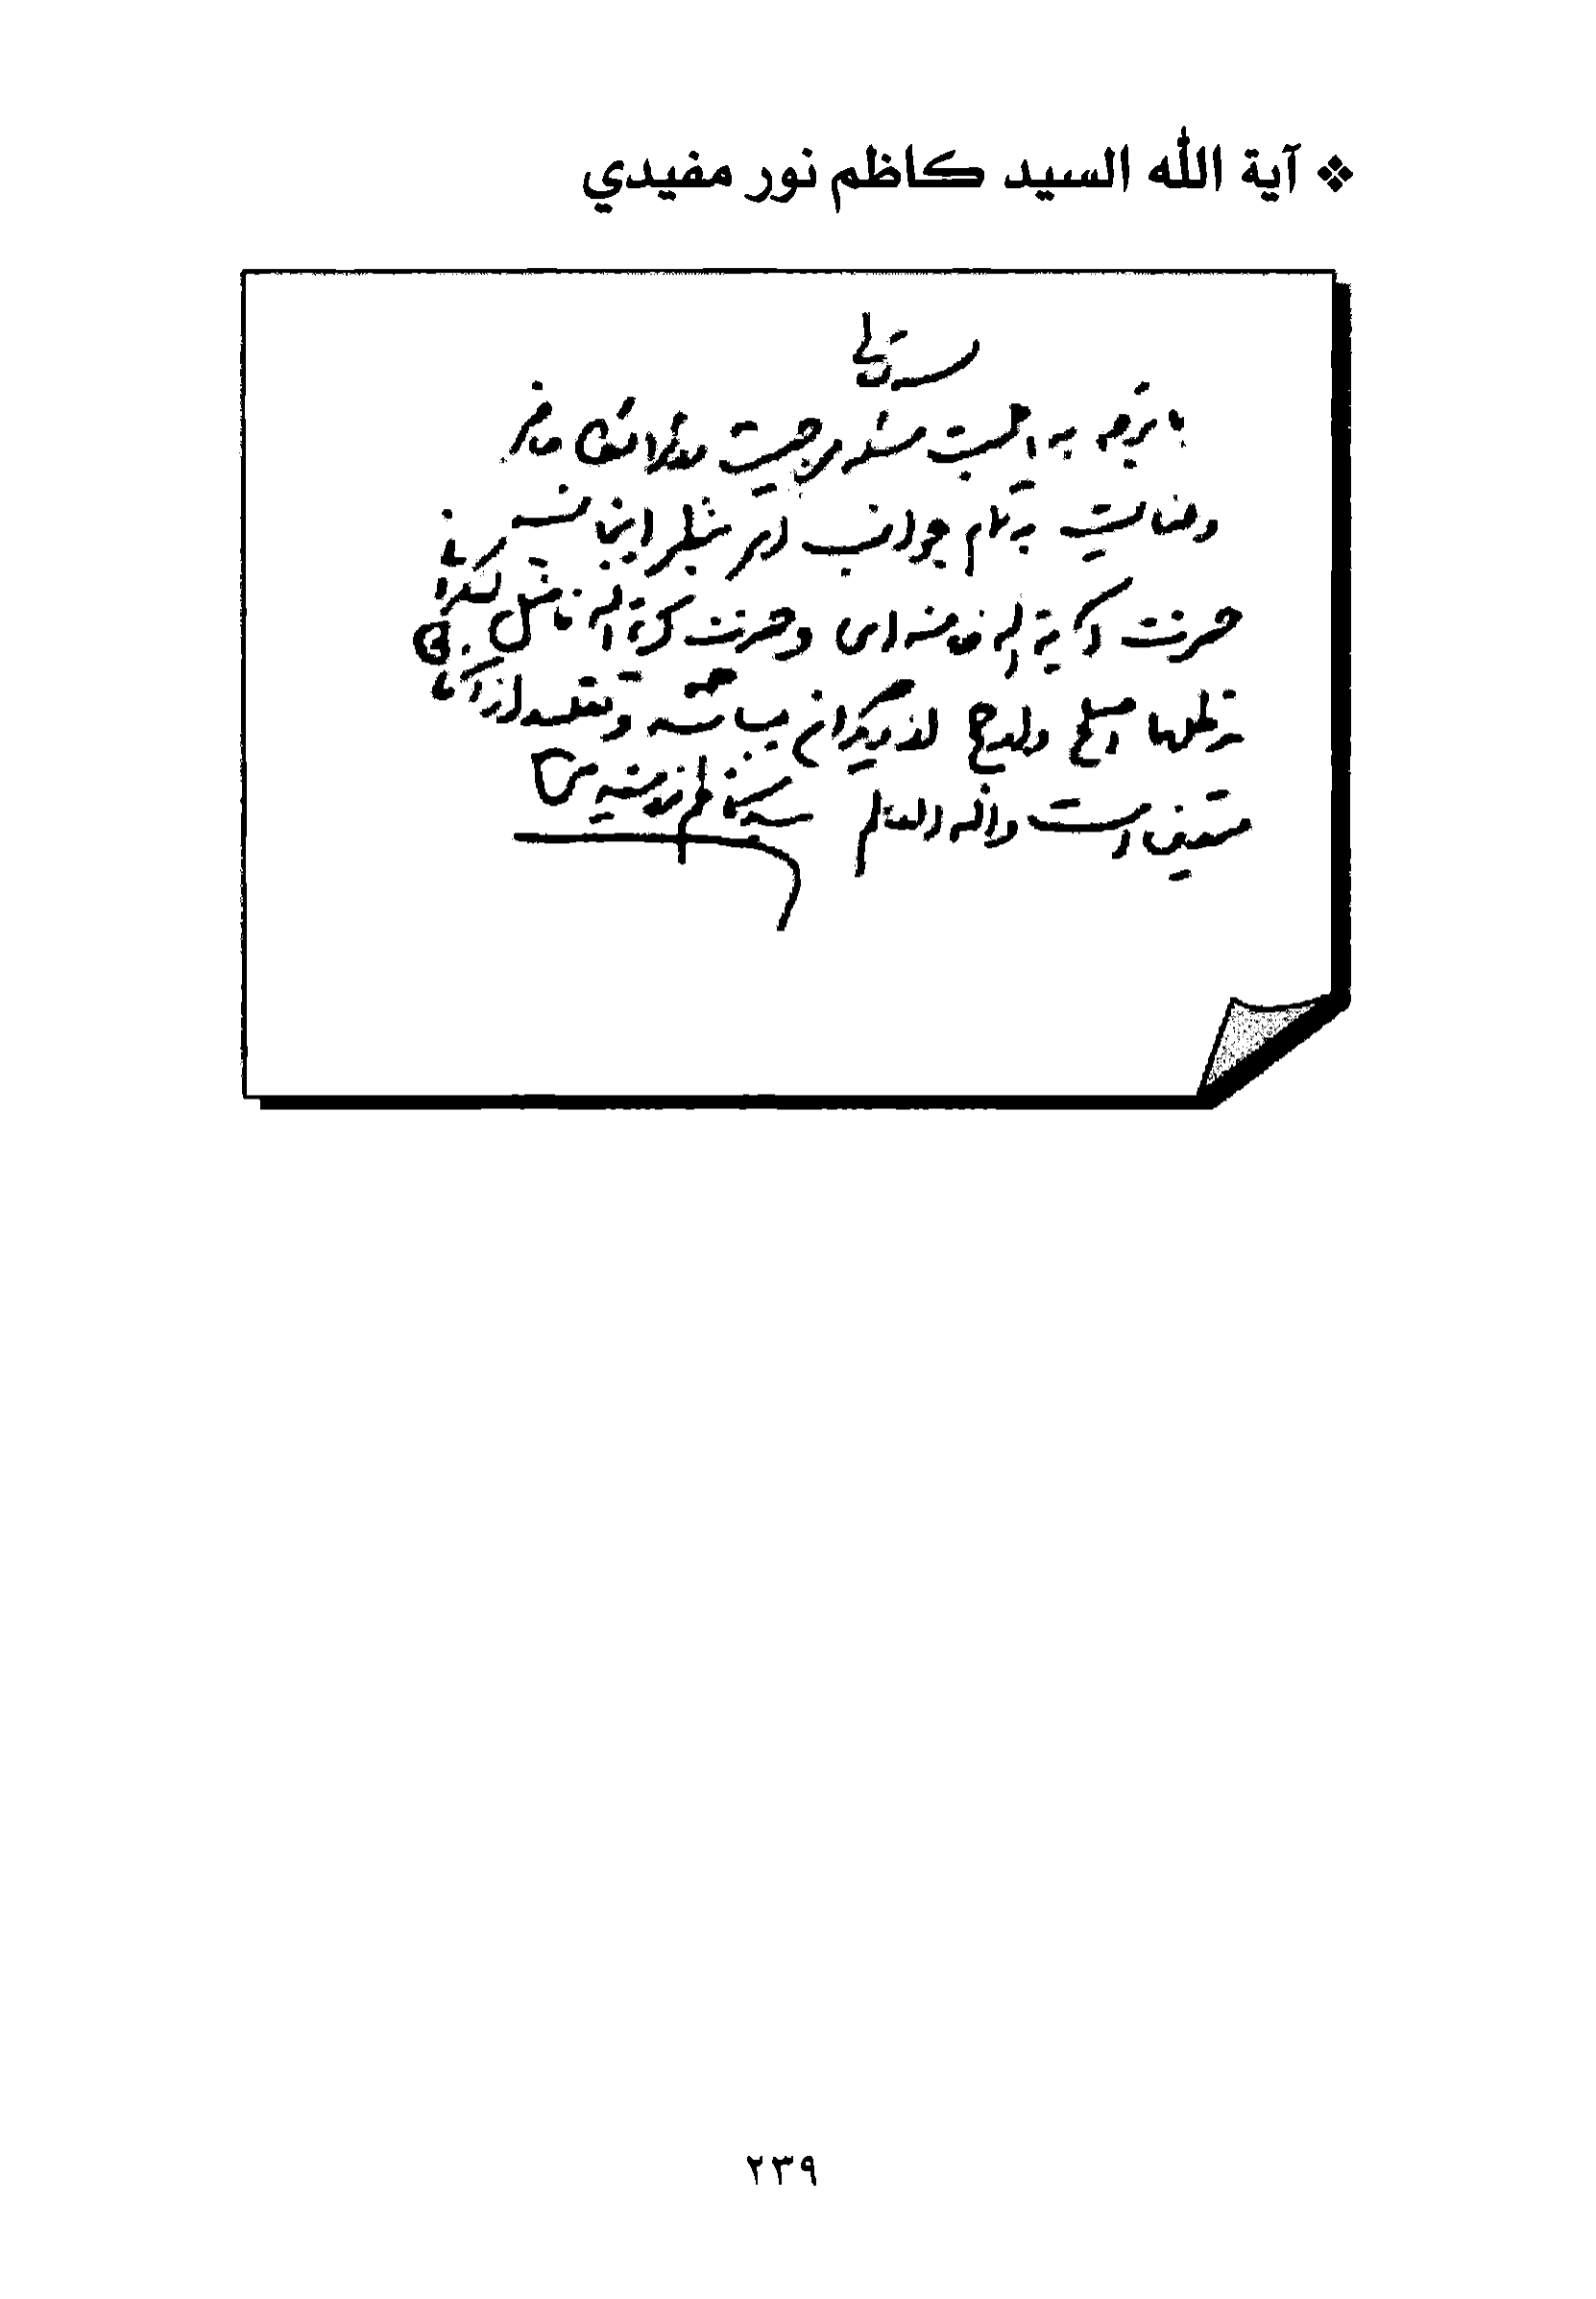 ❖ آية الله السيد كاظم نور مفيدي
با توجه به اهمیت مسئله مرجعیت
وعنایت به تمام جوانب امر بنظر اینجانب
حضرت آیة اله خامنه ای و حضرت آیة اله فاضل لنکرانی
مد ظلهما اصلح و از دیگران میباشند و تقلید از آنان
متعین است واله العالم سید کاظم نورمفیدی
٢٣٩